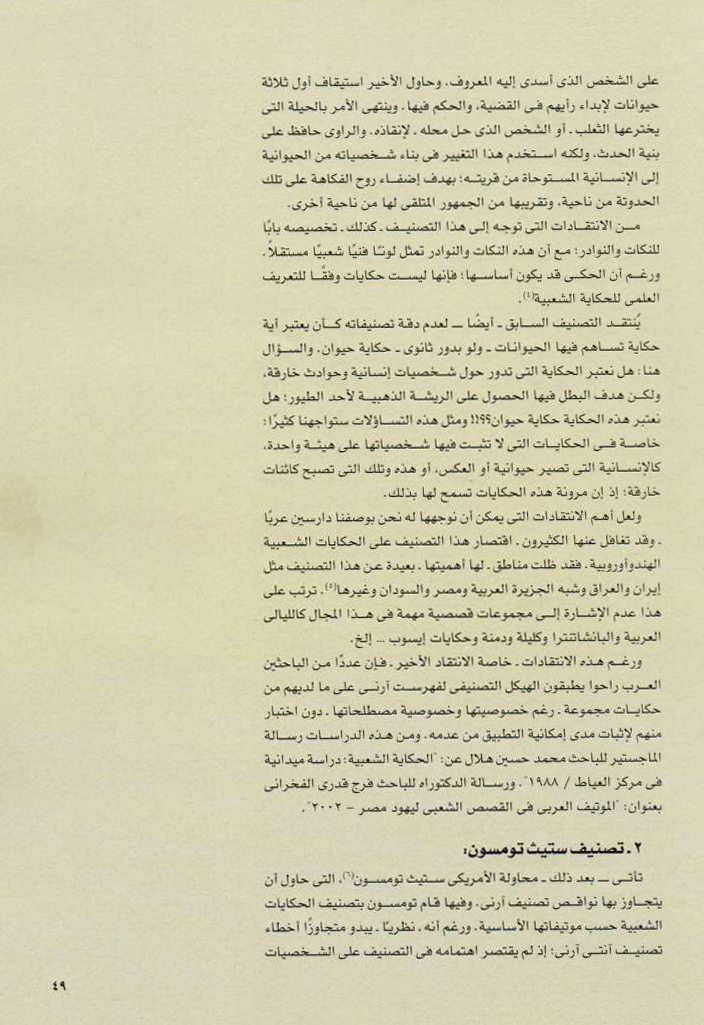 على الشخص الذى أسدى إليه المعروف. وحاول الأخير استيقاف أول ثلاثة
حيوانات لإبداء رأيهم فى القضية، والحكم فيها. وينتهى الأمر بالحيلة التى
يخترعها الثعلب ـ أو الشخص الذى حل محله ـ لإنقاذه. والراوى حافظ على
بنية الحدث، ولكنه استخدم هذا التغيير فى بناء شخصياته من الحيوانية
إلى الإنسانية المستوحاة من قريته؛ بهدف إضفاء روح الفكاهة على تلك
الحدوتة من ناحية، وتقريبها من الجمهور المتلقى لها من ناحية أخرى.
من الانتقادات التى توجه إلى هذا التصنيف ـ كذلك ـ تخصيصه بابًا
للنكات والنوادر؛ مع أن هذه النكات والنوادر تمثل لونًا فنيًا شعبيًا مستقلاً.
ورغم أن الحكى قد يكون أساسها؛ فإنها ليست حكايات وفقًا للتعريف
العلمى للحكاية الشعبية(٤).
يُنتقد التصنيف السابق ـ أيضًا ـ لعدم دقة تصنيفاته كأن يعتبر أية
حكاية تساهم فيها الحيوانات ـ ولو بدور ثانوى ـ حكاية حيوان. والسؤال
هنا: هل نعتبر الحكاية التى تدور حول شخصيات إنسانية وحوادث خارقة،
ولكن هدف البطل فيها الحصول على الريشة الذهبية لأحد الطيور؛ هل
نعتبر هذه الحكاية حكاية حيوان؟؟!! ومثل هذه التساؤلات ستواجهنا كثيرًا؛
خاصة فى الحكايات التى لا تثبت فيها شخصياتها على هيئة واحدة،
كالإنسانية التى تصير حيوانية أو العكس، أو هذه وتلك التى تصبح كائنات
خارقة؛ إذ إن مرونة هذه الحكايات تسمح لها بذلك.
ولعل أهم الانتقادات التى يمكن أن نوجهها له نحن بوصفنا دارسين عربًا
ـ وقد تغافل عنها الكثيرون ـ اقتصار هذا التصنيف على الحكايات الشعبية
الهندوأوروبية. فقد ظلت مناطق ـ لها أهميتها ـ بعيدة عن هذا التصنيف مثل
إيران والعراق وشبه الجزيرة العربية ومصر والسودان وغيرها(٥). ترتب على
هذا عدم الإشارة إلى مجموعات قصصية مهمة فى هذا المجال كالليالى
العربية والبانشاتنترا وكليلة ودمنة وحكايات إيسوب ... إلخ.
ورغم هذه الانتقادات ـ خاصة الانتقاد الأخير ـ فإن عددًا من الباحثين
العرب راحوا يطبقون الهيكل التصنيفى لفهرست آرنى على ما لديهم من
حكايات مجموعة ـ رغم خصوصيتها وخصوصية مصطلحاتها ـ دون اختبار
منهم لإثبات مدى إمكانية التطبيق من عدمه. ومن هذه الدراسات رسالة
الماجستير للباحث محمد حسين هلال عن: "الحكاية الشعبية: دراسة ميدانية
فى مركز العياط / ١٩٨٨". ورسالة الدكتوراه للباحث فرج قدرى الفخرانى
بعنوان: "الموتيف العربى فى القصص الشعبى ليهود مصر – ٢٠٠٢".
٢ ـ تصنيف ستيث تومسون:
تأتى ـ بعد ذلك ـ محاولة الأمريكى ستيث تومسون(٦)، التى حاول أن
يتجاوز بها نواقص تصنيف آرنى. وفيها قام تومسون بتصنيف الحكايات
الشعبية حسب موتيفاتها الأساسية. ورغم أنه ـ نظريًا ـ يبدو متجاوزًا أخطاء
تصنيف آنتى آرنى؛ إذ لم يقتصر اهتمامه فى التصنيف على الشخصيات
٤٩